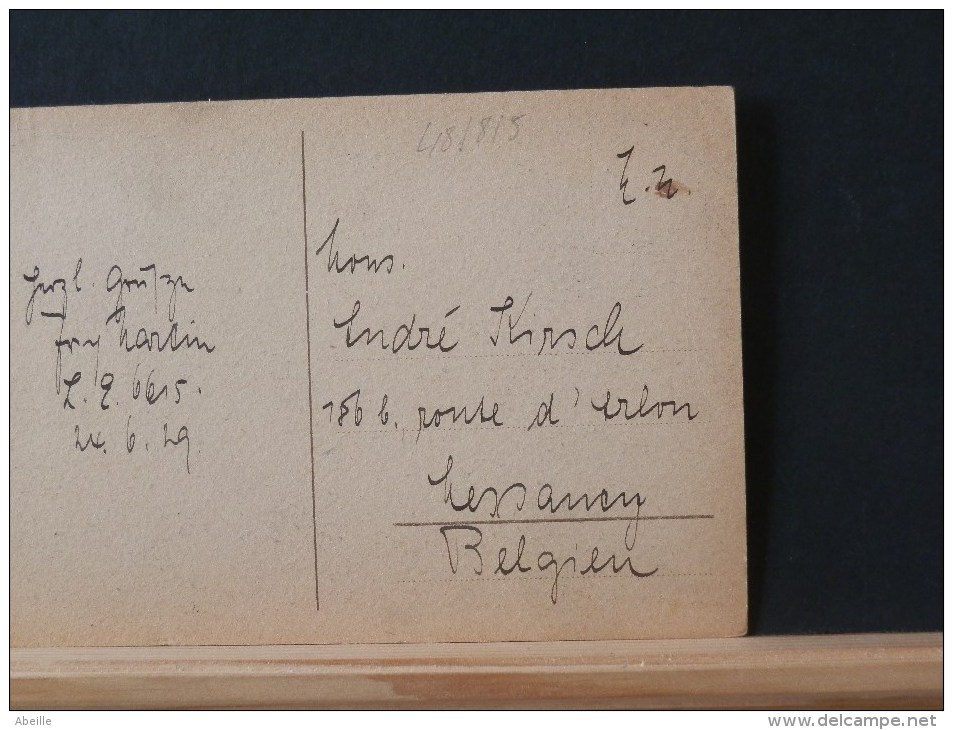 48/815
Herzl. Grüsze
Martin
L. E. 6615.
24. 6. 29.
Mons.
André Kirsch
186 b. route d'Arlon
Messancy
Belgien
Abeille
www.delcampe.net